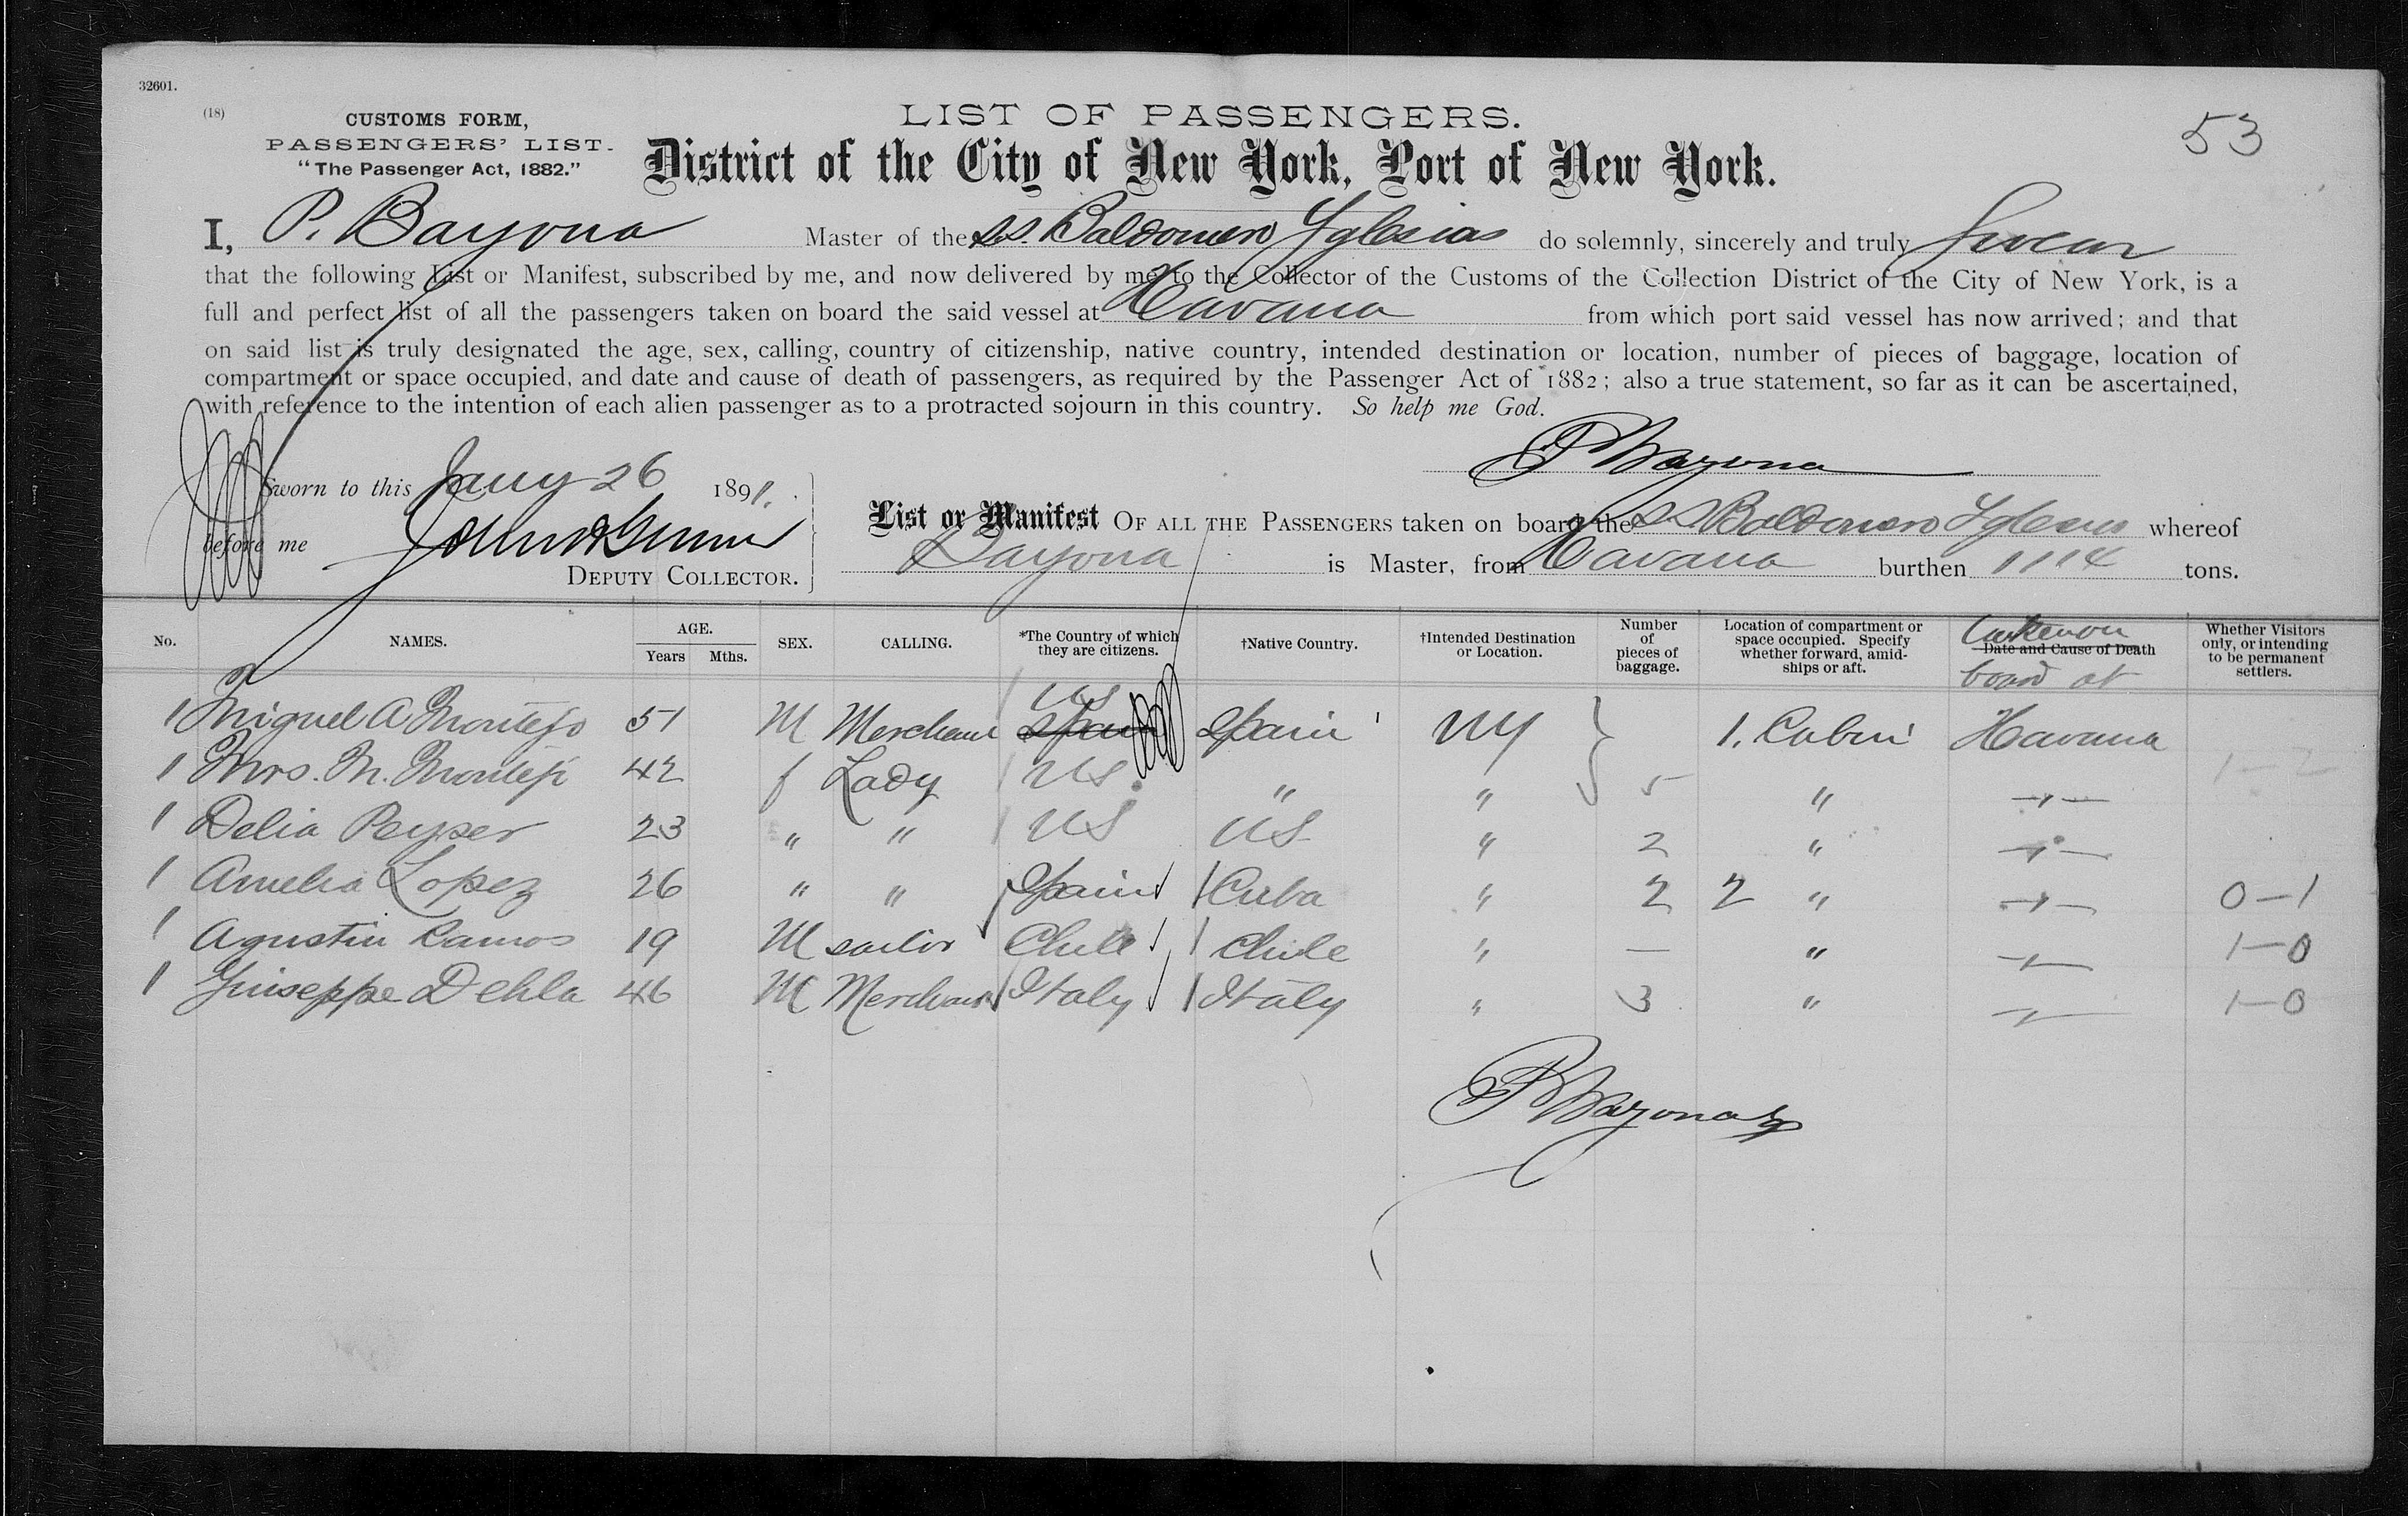 32601.
(18)
CUSTOMS FORM,
PASSENGERS' LIST.
"The Passenger Act, 1882."
LIST OF PASSENGERS.
District of the City of New York, Port of New York.
53
I, P. Bayona Master of the SS. Baldomero Yglesias do solemnly, sincerely and truly Swear
that the following List or Manifest, subscribed by me, and now delivered by me to the Collector of the Customs of the Collection District of the City of New York, is a
full and perfect list of all the passengers taken on board the said vessel at Havana from which port said vessel has now arrived; and that
on said list is truly designated the age, sex, calling, country of citizenship, native country, intended destination or location, number of pieces of baggage, location of
compartment or space occupied, and date and cause of death of passengers, as required by the Passenger Act of 1882; also a true statement, so far as it can be ascertained,
with reference to the intention of each alien passenger as to a protracted sojourn in this country. So help me God.
P Bayona
Sworn to this Jany 26 1891.
before me
DEPUTY COLLECTOR.
List or Manifest OF ALL THE PASSENGERS taken on board the SS Baldomero Yglesias whereof
Bayona is Master, from Havana burthen 1114 tons.
No. NAMES. AGE. Years Mths. SEX. CALLING. *The Country of which they are citizens. †Native Country. †Intended Destination or Location. Number of pieces of baggage. Location of compartment or space occupied. Specify whether forward, amid-ships or aft. Date and Cause of Death board at Whether Visitors only, or intending to be permanent settlers.
1 Miguel A Montejo 51 M Merchant Spain US Spain NY 1. Cabin Havana
1 Mrs. M. Monteji 42 f Lady US " " 5 " 1-2
1 Delia Peyser 23 " " US US " 2 "
1 Amelia Lopez 26 " " Spain Cuba " 2 2 " 0-1
1 Agustin Ramos 19 M sailor Chile Chile " — " 1-0
1 Giuseppe Dehla 46 M Merchant Italy Italy " 3 " 1-0
P Bayona